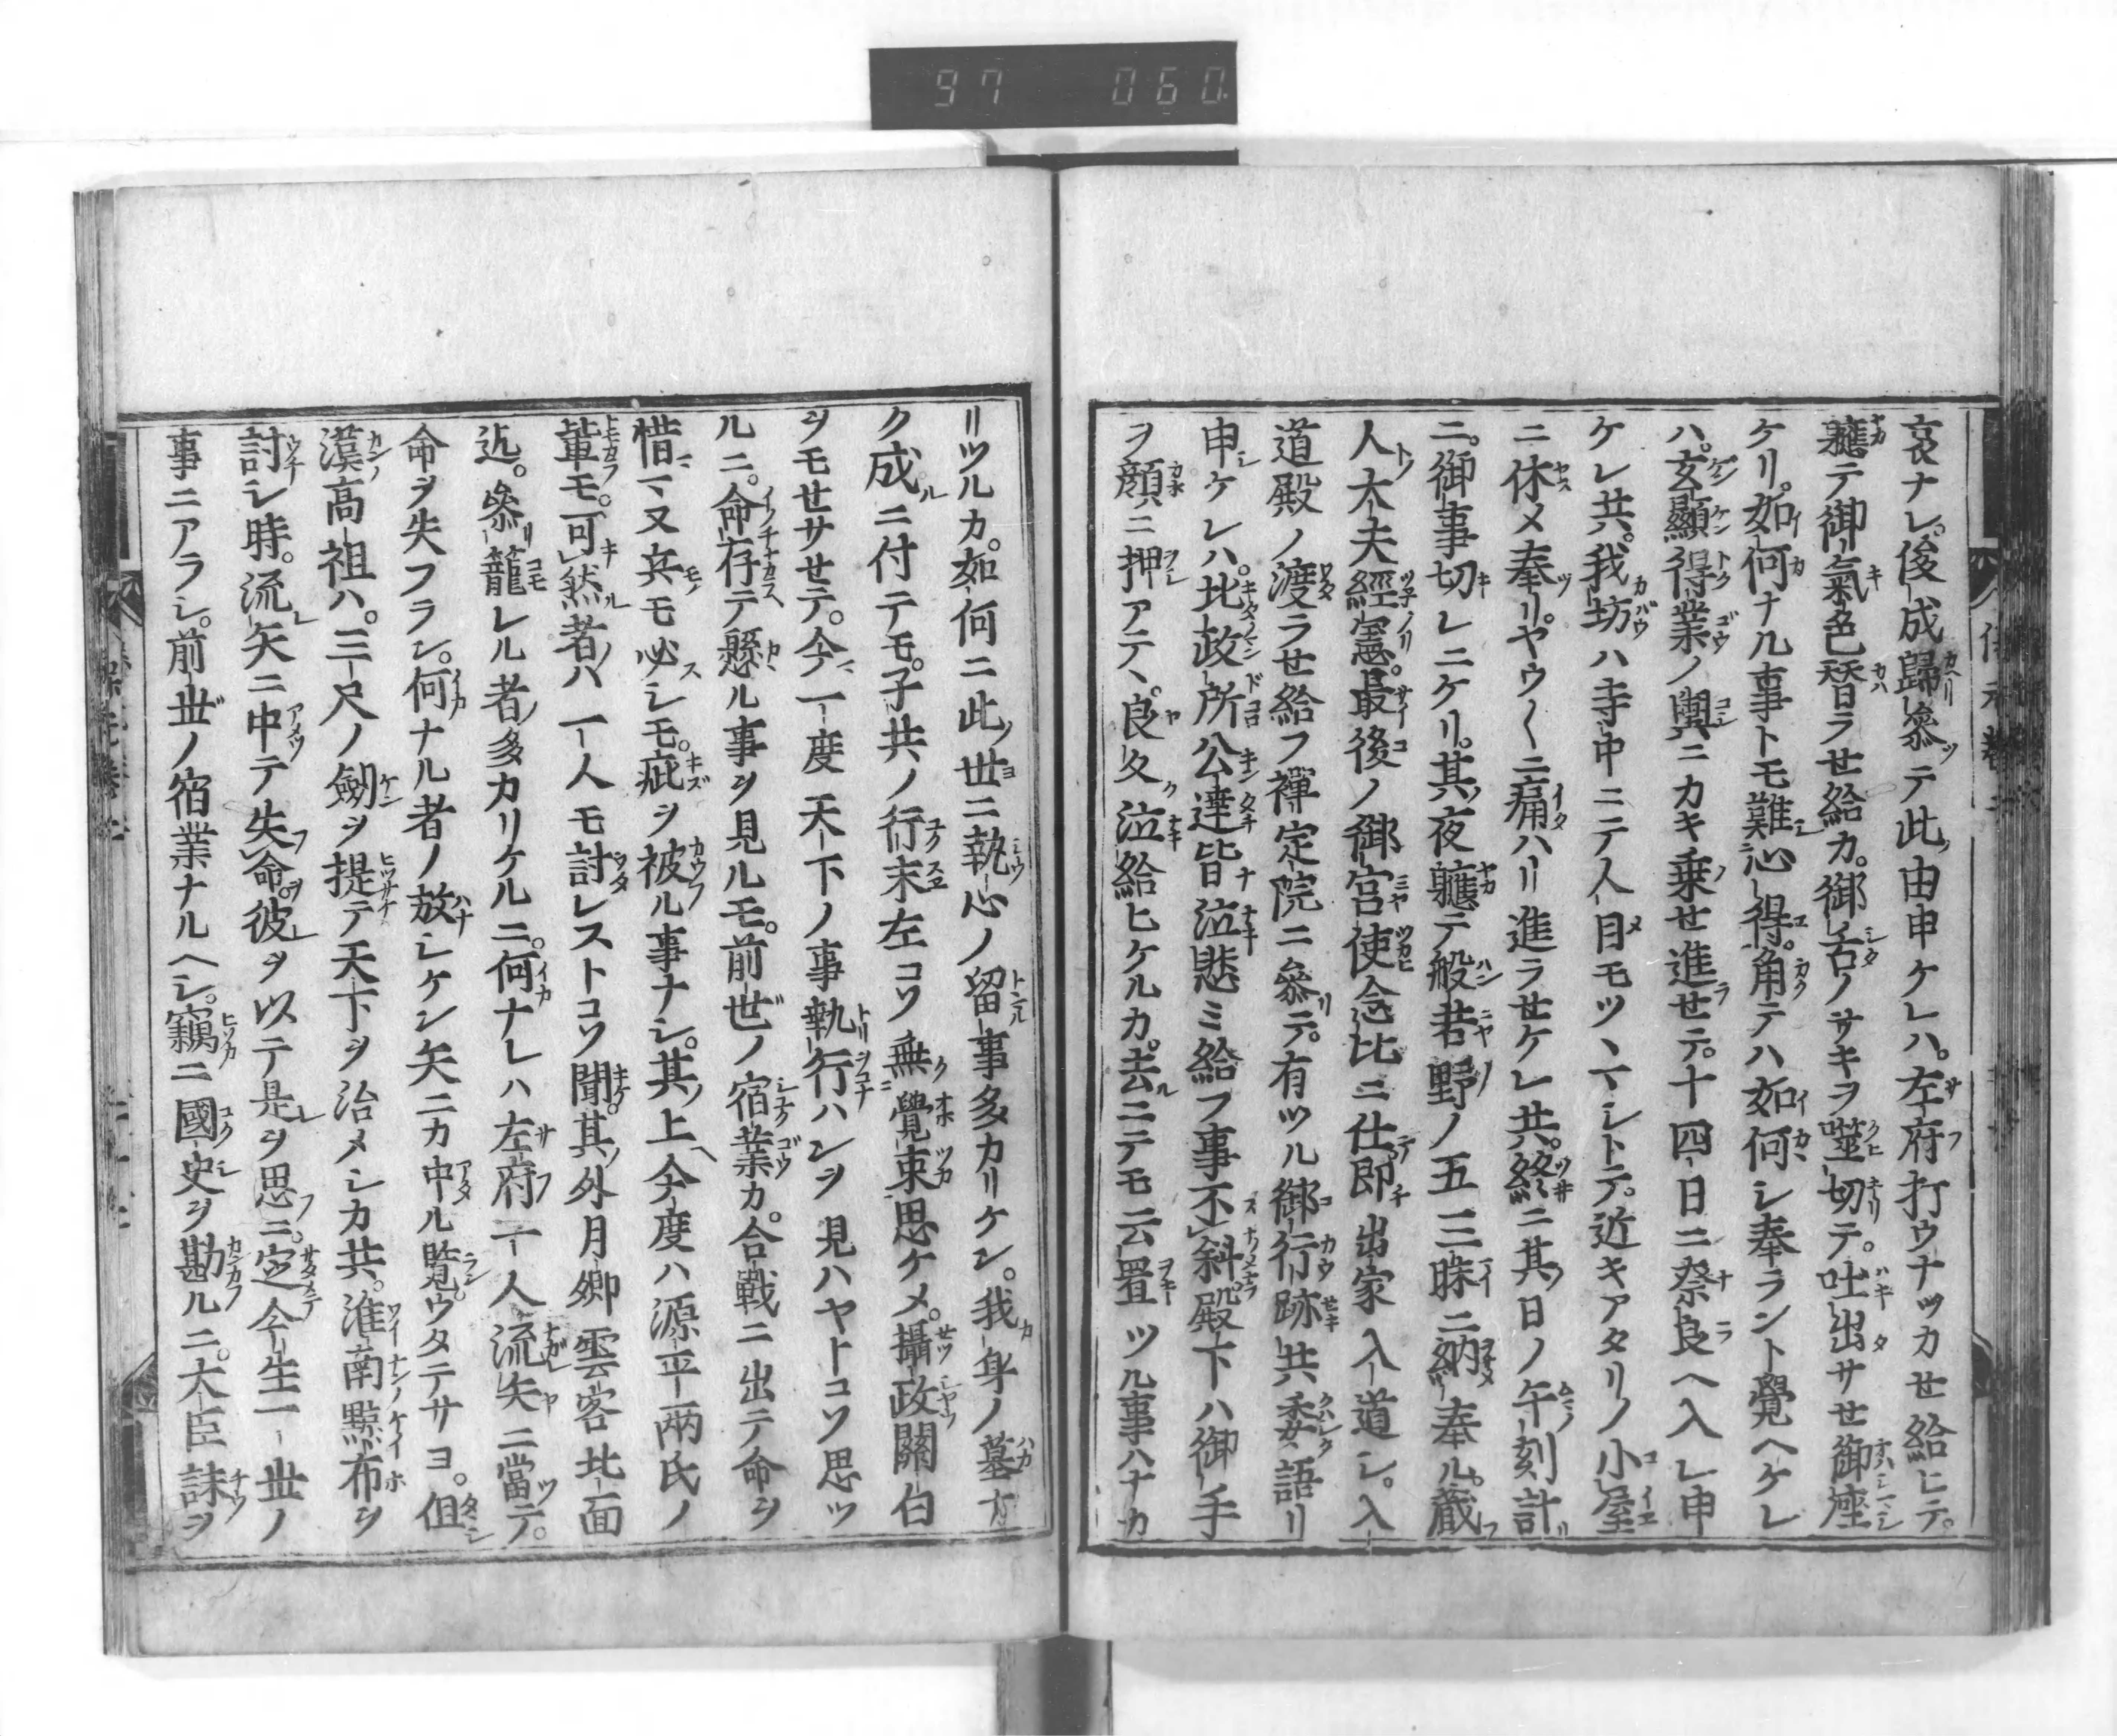 97 060
哀ナレ。俊成歸參テ此由申ケレハ。左府打ウナツカセ給ヒテ。
軈テ御氣色替ラせ給カ。御舌ノサキヲ噬切テ。吐出サせ御座
ケリ。如何ナル事トモ難心得。角テハ如何シ奉ラント覺ヘケレ
ハ。玄顯得業ノ輿ニカキ乗せ進せテ。十四日ニ祭良ヘ入レ申
ケレ共。我坊ハ寺中ニテ人目モツヽマシトテ。近キアタリノ小屋
ニ休メ奉リ。ヤウ〱ニ痛ハリ進ラせケレ共。終ニ其日ノ午刻計
ニ。御事切レニケリ。其夜軈テ般若野ノ五三昧ニ納奉ル。蔵
人大夫經憲。最後ノ御宮使念比ニ仕即出家入道シ。入
道殿ノ渡ラせ給フ禪定院ニ參テ。有ツル御行跡共委語リ
申ケレハ。北政所公達皆泣悲ミ給フ事不斜。殿下ハ御手
ヲ顔ニ押アテヽ。良久泣給ヒケルカ。去ニテモ云置ツル事ハナカ
リツルカ。如何ニ此世ニ執心ノ留事多カリケン。我身ノ墓方
ク成ニ付テモ。子共ノ行末左コソ無覺束思ケメ。攝政關白
ヲモせサせテ。今一度天下ノ事執行ハンヲ見ハヤトコソ思ツ
ルニ。命存テ懸ル事ヲ見ルモ。前世ノ宿業カ。合戰ニ出テ命ヲ
惜マヌ兵モ必シモ。疵ヲ被ル事ナシ。其上今度ハ源平兩氏ノ
輩モ。可然者ハ一人モ討レストコソ聞。其外月卿雲客北面
近。參籠レル者多カリケルニ。何ナレハ左府一人流矢ニ當テ。
命ヲ失フラン。何ナル者ノ放シケン矢ニカ中ル覽。ウタテサヨ。但
漢高祖ハ。三尺ノ劔ヲ提テ天下ヲ治メシカ共。淮南黥布ヲ
討シ時。流矢ニ中テ失命。彼ヲ以テ是ヲ思ニ。定今生一世ノ
事ニアラシ。前世ノ宿業ナルヘシ。竊ニ國史ヲ勘ルニ。大臣誅ヲ